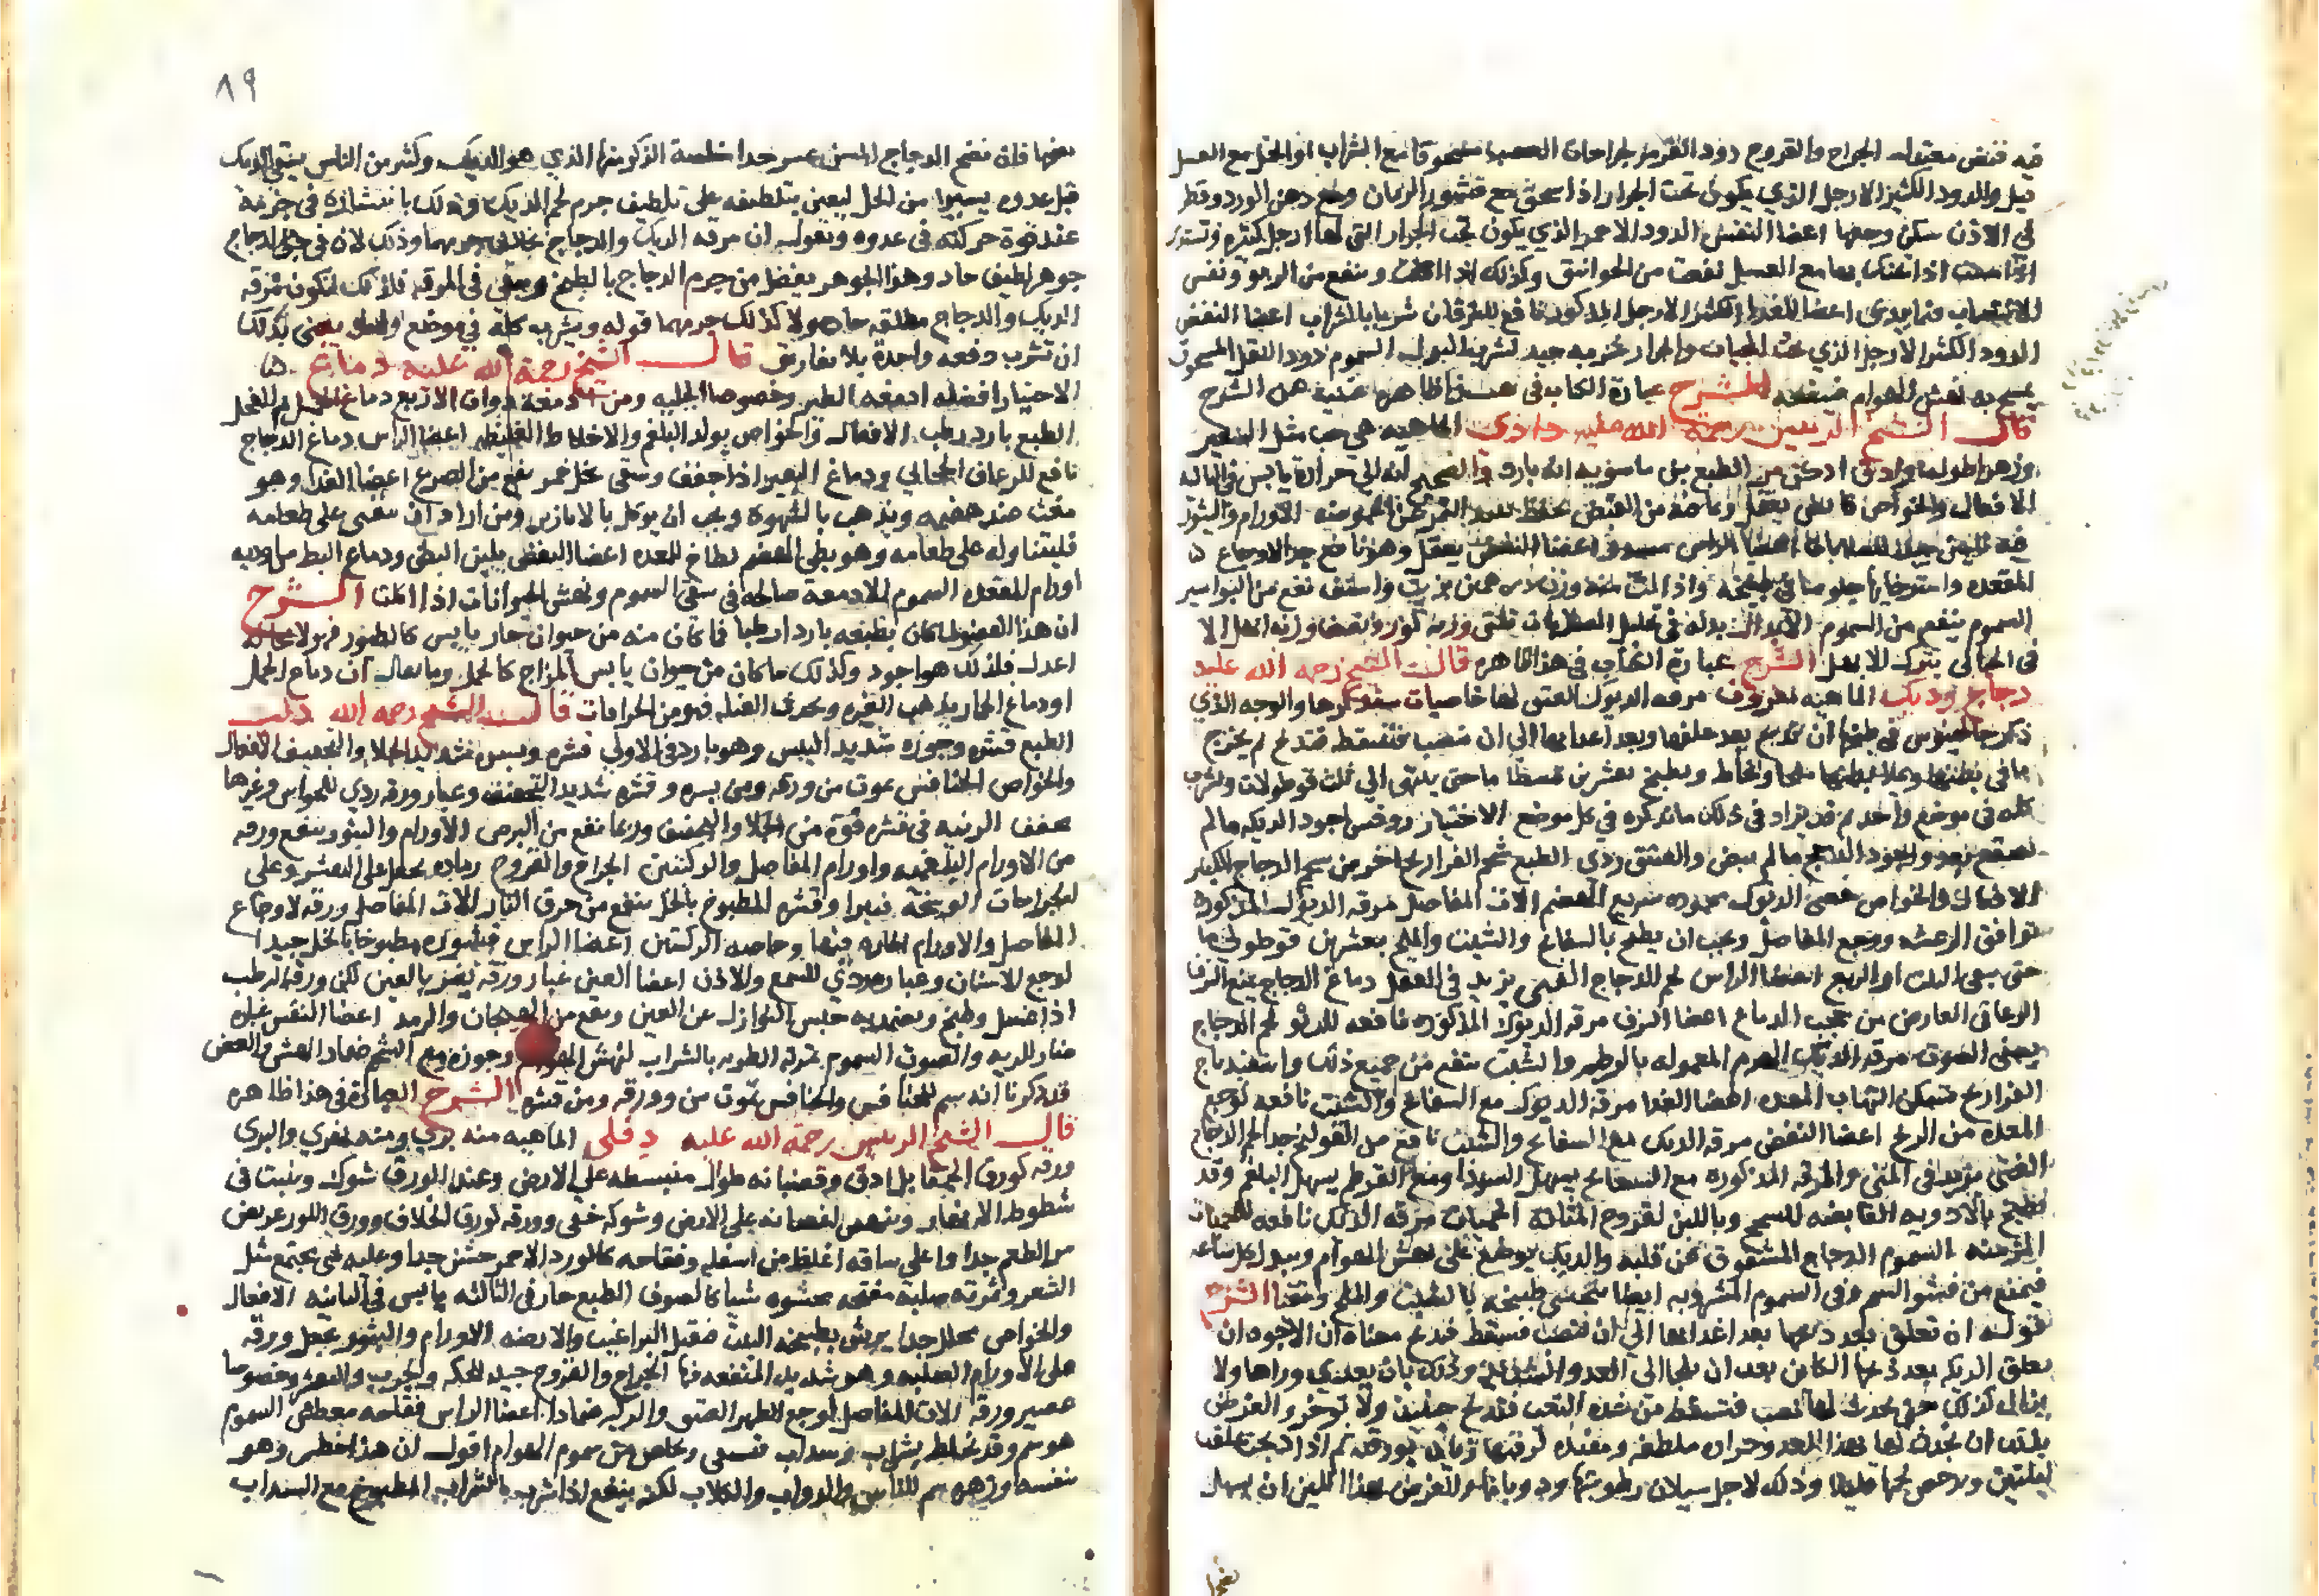 فيه قبض معتدل الجراح والقروح دود القرمز لجراحات العصب مسحوقا مع الشراب او الخل مع العسل
قيل والدود الكثير الارجل الذي يكون تحت الجرار اذا سحق مع قشور الرمان ومع دهن الورد وقطر
في الاذن سكن وجعها اعضا النفس الدود الاحمر الذي يكون تحت الجرار التي لها ارجل كثيرة وتستدير
اذا تحنك بها مع العسل نفعت من الخوانيق وكذلك اذا اكلت وينفع من الربو ونفس
الانتصاب فيما يدعى اعضا الغذا الكثير الارجل المذكور نافع لليرقان شربا بالشراب اعضا النفض
الدود الكثير الارجل الذي تحت الجرار جيد لعسر البول السموم دود البقل المسحوق
الشرح عبارة الكتاب في هذا ظاهرة غنية عن الشرح
قال الشيخ الرئيس رحمة الله عليه دادي الماهية هي حب مثل الشعير
وهو اطول وادق ادكن الطبع ابن ماسويه انه بارد والصحيح انه الى حرارة يابس في الثانية
الافعال والخواص قابض يعقل وما فيه من القبض يحفظ نبيذ التمر عن الحموضة الاورام والبثور
فيه تليين للصلابات اعضا الراس اعضا النفض يعقل وهو نافع جدا لاوجاع
المقعدة واسترخايها جلوسا في طبيخه واذا وزن درهمين بزيت واستف نفع من البواسير
السموم ينفع من السموم الابدال بدله في تحليل الصلابات ثلثي وزنه لوز ونصف وزنه ابهل الا
في الحبالى يترك الابهل الشرح عبارة الكتاب في هذا ظاهرة قال الشيخ رحمة الله عليه
دجاج وديك الماهية معروف مرقة الديوك العتق لها خاصيات سنذكرها والوجه الذي
ذكر جالينوس في طبخها ان تذبح بعد علفها وبعد اعدائها الى ان تنصب فتسقط فتذبح ثم يخرج
ما في بطنها ويملا بطنها ملحا وتخاط ويطبخ بعشرين قسطا ما حتى ينتهي الى ثلث قوطولات ويشرب
كله في موضع واحد ثم قد يزاد في ذلك ما نذكره في كل موضع الاختيار روفس اجود الديكة ما لم
يصقع بعد واجود الدجاج ما لم يبض والعتيق ردي الطبع شحم الفراريج احر من شحم الدجاج الكبار
الافعال والخواص خصى الديوك محمودة سريع الهضم الات المفاصل مرقة الديوك المذكورة
توافق الرعشة ووجع المفاصل ويجب ان يطبخ بالبسفايج والشبث والملح بعشرين قوطولي ما
حتى يبقى الثلث او الربع اعضا الراس لحم الدجاج الفتي يزيد في العقل دماغ الدجاج يمنع النزف
الرعافي العارض من حجب الدماغ اعضا النفس مرقة الديوك المذكورة نافعة للربو لحم الدجاج
يصفي الصوت مرقة الديك الهرم المعمولة بالقرطم والشبث ينفع من جميع ذلك واسفيذباج
الفراريج تسكن التهاب المعدة اعضا الغذا مرقة الديوك مع البسفايج والشبث نافعة لوجع
المعدة من الريح اعضا النفض مرقة الديك مع البسفايج والشبث نافع من القولنج جدا لحم الدجاج
الفتي يزيد في المني والمرقة المذكورة مع البسفايج يسهل السودا ومع القرطم يسهل البلغم وقد
يطبخ بالادوية القابضة للسحج وباللبن لقروح المثانة الحميات مرقة الديك نافعة للحميات
المزمنة السموم الدجاج المشقوق عن قلبه والديك يوضع على نهش الهوام ويبدل كل ساعة
فيمنع من فشو السم وفي السموم المشروبة ايضا يتحسى طبيخه بالشبث والملح ويتقيا الشرح
قوله ان تعلق بعد ذبحها بعد اغدائها الى ان تنصب فتسقط فتذبح معناه ان الاجود ان
يعلق الديك بعد ذبحها الكائن بعد ان يلجا الى العدو الشديد وذلك بان يعدى وراها ولا
يزال كذلك حتى يحدث لها تعب فتسقط من شدة التعب فتذبح حينئذ ولا توخر والغرض
بذلك ان يحدث لها بهذا العدو حرارة ملطفة ثم اذا ذبحت علقت
ليلتين وذلك لاجل سيلان رطوبتها والغرض بهذا اللبن ان يسهل
٨٩
هضمها فان هضم الدجاج المسن عسر جدا خاصة الذكور منها الذي هو الديك وكثير من الناس يسقي الديك
قبل عدوه يسيرا من الخل ليعين بتلطيفه على تلطيف جرم لحم الديك وذلك بانتشاره في جرمه
عند قوة حركته في عدوه ونقول ان مرقة الديك والدجاج بخلاف جرمهما وذلك لان في جرم الدجاج
جوهر لطيف حاد وهذا الجوهر ينفصل من جرم الدجاج بالطبخ ويبقى في المرقة فلذلك تكون مرقة
الديك والدجاج مطلقة حادة ولا كذلك جرمهما قوله ويشربه كله في موضع واحد يعني بذلك
ان تشرب دفعة واحدة بلا تفاريق قال الشيخ رحمة الله عليه دماغ
الاختيار افضله ادمغة الطير وخصوصا الجبلية ومن ادمغة ذوات الاربع دماغ الحمل ثم العجل
الطبع بارد رطب الافعال والخواص يولد البلغم والاخلاط الغليظة اعضا الراس دماغ الدجاج
نافع للرعاف الحجابي ودماغ البعير اذا جفف وسقي بخل خمر نفع من الصرع اعضا الغذا وهو
مغث ضد هضمه ويذهب بالشهوة ويجب ان يوكل بالابازير ومن اراد ان يتقيى على طعامه
فليتناوله على طعامه وهو بطي الهضم لطاخ للمعدة اعضا النفض يلين البطن ودماغ البط من ادوية
اورام المقعدة السموم الادمغة صالحة في سقي السموم ونهش الحيوانات اذا اكلت الشرح
ان هذا العضو لما كان بطبعه باردا رطبا فما كان منه من حيوان حار يابس كالطيور فهو لا محالة
اعدل فلذلك هو اجود وكذلك ما كان من حيوان يابس المزاج كالجمل وما يقال ان دماغ الجمل
او دماغ الحمار يذهب الغيرة فهو من الخرافات قال الشيخ رحمه الله دلب
الطبع قشره وجوزه شديد اليبس وهو بارد في الاولى قشره ويبس شديد الجلا والتجفيف الافعال
والخواص الخنافس يموت من ورقه ومن يبسه وقشره شديد التجفيف وغبار ورقه ردي للحواس وغيرها
يجفف الزينة في قشره قوة من الجلا والتجفيف وربما نفع من البرص الاورام والبثور ينفع ورقه
من الاورام البلغمية واورام المفاصل والركبتين الجراح والقروح رماده يجعل على التقشر وعلى
الجراحات الوسخة فيبرا وقشره المطبوخ بالخل ينفع من حرق النار الات المفاصل ورقه لاوجاع
المفاصل والاورام الحارة فيها وخاصة الركبتين اعضا الراس قشوره مطبوخا بالخل جيد
لوجع الاسنان وغباره ردي للسمع والاذن اعضا العين غبار ورقه يضر بالعين لكن ورقه الرطب
اذا غسل وطبخ وضمد به حبس النوازل عن العين ونفع من الهيجان والرمد اعضا النفس غباره
ضار للرية والصوت السموم ثمرته الطرية بالشراب لنهش الهوام وجوزه مع الشحم ضماد النهش والعض
قد ذكرنا انه سم للخنافس والخنافس تموت من ورقه ومن قشره الشرح العبارة في هذا ظاهرة
قال الشيخ الرئيس رحمة الله عليه دفلى الماهية منه بري ومنه نهري والبري
ورقه كورق الحمقا بل ادق وقضبانه طوال منبسطة على الارض وعند الورق شوك وينبت في
شطوط الانهار وينهض اغصانه على الارض وشوكه خفي وورقه كورق الخلاف وورق اللوز عريض
مر الطعم جدا واعلى ساقه اغلظ من اسفله وفقاحه كالورد الاحمر حسن جدا وعليه شي يجتمع مثل
الشعر وثمرته صلبة مفتحة محشوة شيا كالصوف الطبع حار في الثالثة يابس في الثانية الافعال
والخواص محلل جدا يرش بطبيخه البيت فيقتل البراغيث والارضة الاورام والبثور يجعل ورقه
على الاورام الصلبة وهو شديد المنفعة فيها الجراح والقروح جيد للحكة والجرب والتقشر وخصوصا
عصير ورقه الات المفاصل لوجع الظهر العتيق والركبة ضمادا اعضا الراس فقاحه معطس السموم
هو سم وقد يخلط بشراب وسذاب فيسقى ويخلص من سموم الهوام اقول ان هذا خطر وهو
بنفسه وزهره سم للناس والدواب والكلاب لكنه ينفع اذا شرب بالشراب المطبوخ مع السذاب